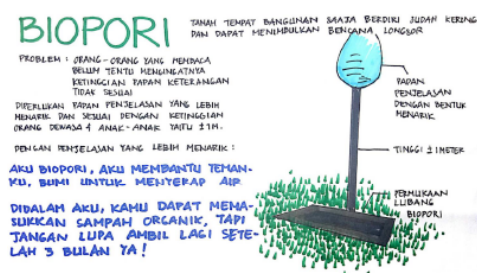 BIOPORI
TANAH TEMPAT BANGUNAN SAAJA BERDIRI SUDAH KERING
DAN DAPAT MENIMBULKAN BENCANA LONGSOR
PROBLEM : ORANG-ORANG YANG MEMBACA
BELUM TENTU MENGINGATNYA
KETINGGIAN PAPAN KETERANGAN
TIDAK SESUAI
DIPERLUKAN PAPAN PENJELASAN YANG LEBIH
MENARIK DAN SESUAI DENGAN KETINGGIAN
ORANG DEWASA & ANAK-ANAK YAITU ±1M.
DENGAN PENJELASAN YANG LEBIH MENARIK :
AKU BIOPORI, AKU MEMBANTU TEMAN-
KU, BUMI UNTUK MENYERAP AIR
DIDALAM AKU, KAMU DAPAT MEMA-
SUKKAN SAMPAH ORGANIK, TAPI
JANGAN LUPA AMBIL LAGI SETE-
LAH 3 BULAN YA!
PAPAN
PENJELASAN
DENGAN BENTUK
MENARIK
TINGGI ±1METER
PERMUKAAN
LUBANG
BIOPORI